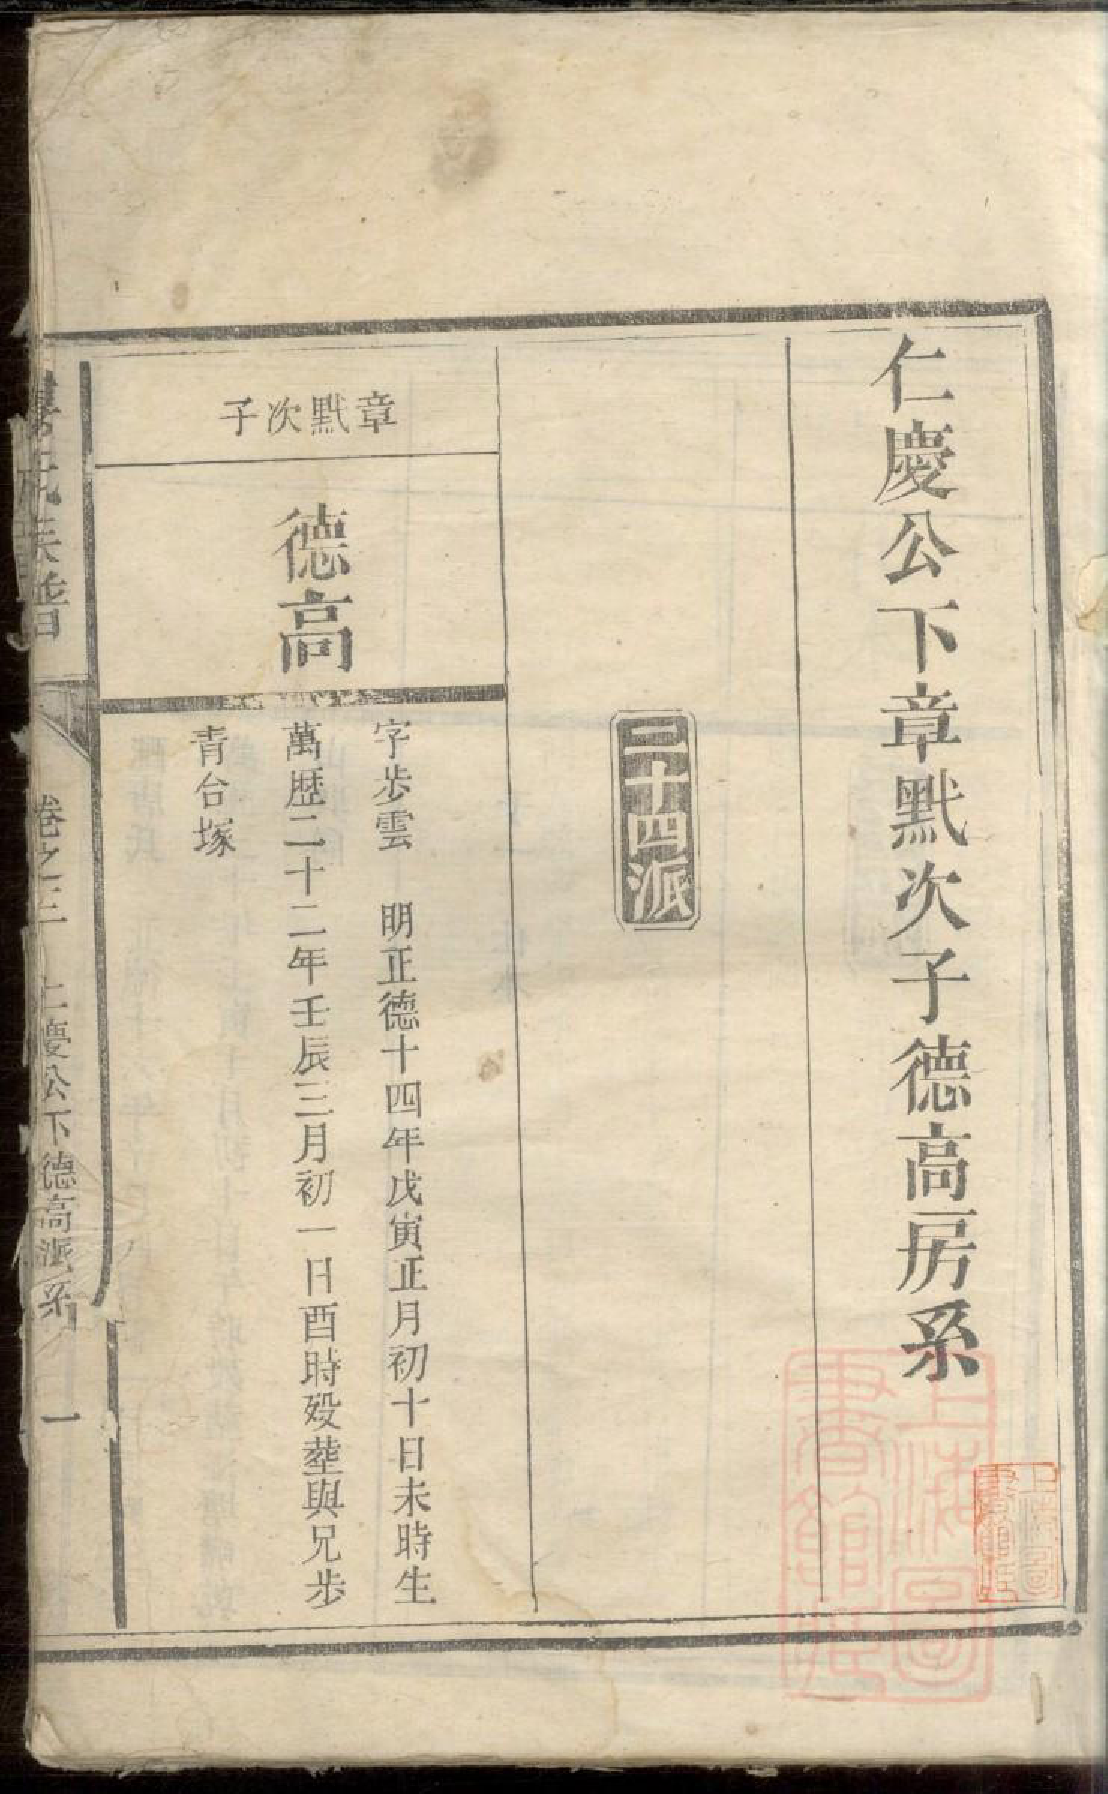 仁慶公下章默次子德高房系
二十四派
章默次子
德高
字步雲　明正德十四年戊寅正月初十日未時生
萬歷二十二年壬辰三月初一日酉時殁塟與兄步
青台塚
氏族譜
卷之三　仁慶公下德高派系　一
上海圖書館藏